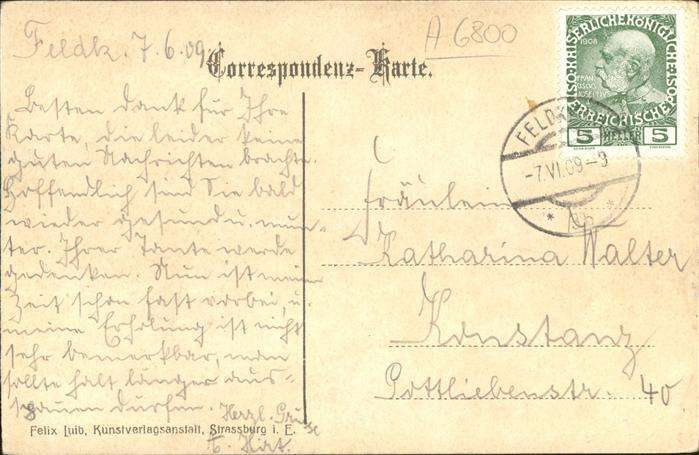 Feldk. 7.6.09.
A 6800
Correspondenz-Karte.
KAISERLICHE KÖNIGLICHE ÖSTERREICHISCHE
1908
5 HELLER 5
FELDK
-7.VI.09-9
Besten Dank für Ihre
Karte, die leider keine
guten Nachrichten brachte.
Hoffentlich sind Sie bald
wieder gesund u. mun-
ter. Ihrer Tante werde
gedenken. Nun ist meine
Zeit schon fast vorbei, u.
meine Erholung ist nicht
sehr bemerkbar, man
sollte halt länger aus-
spauen dürfen. Herzl. Grüsse
Fräulein
Katharina Walter
Konstanz
Gottliebenstr. 40
Felix Luib, Kunstverlagsanstalt, Strassburg i. E.